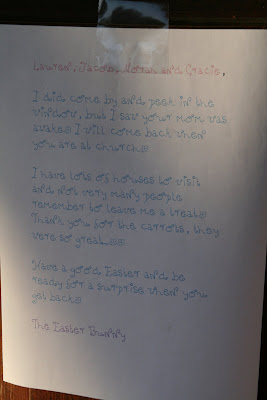 Lauren, Jacob, and Gracie,
I did come by and peek in the
window, but I saw your mom was
awake@ I will come back when
you are at church@
I have lots of houses to visit
and not very many people
remember to leave me a treat@
Thank you for the carrots, they
were so great@@
Have a good Easter and be
ready for a surprise when you
get back@
The Easter Bunny